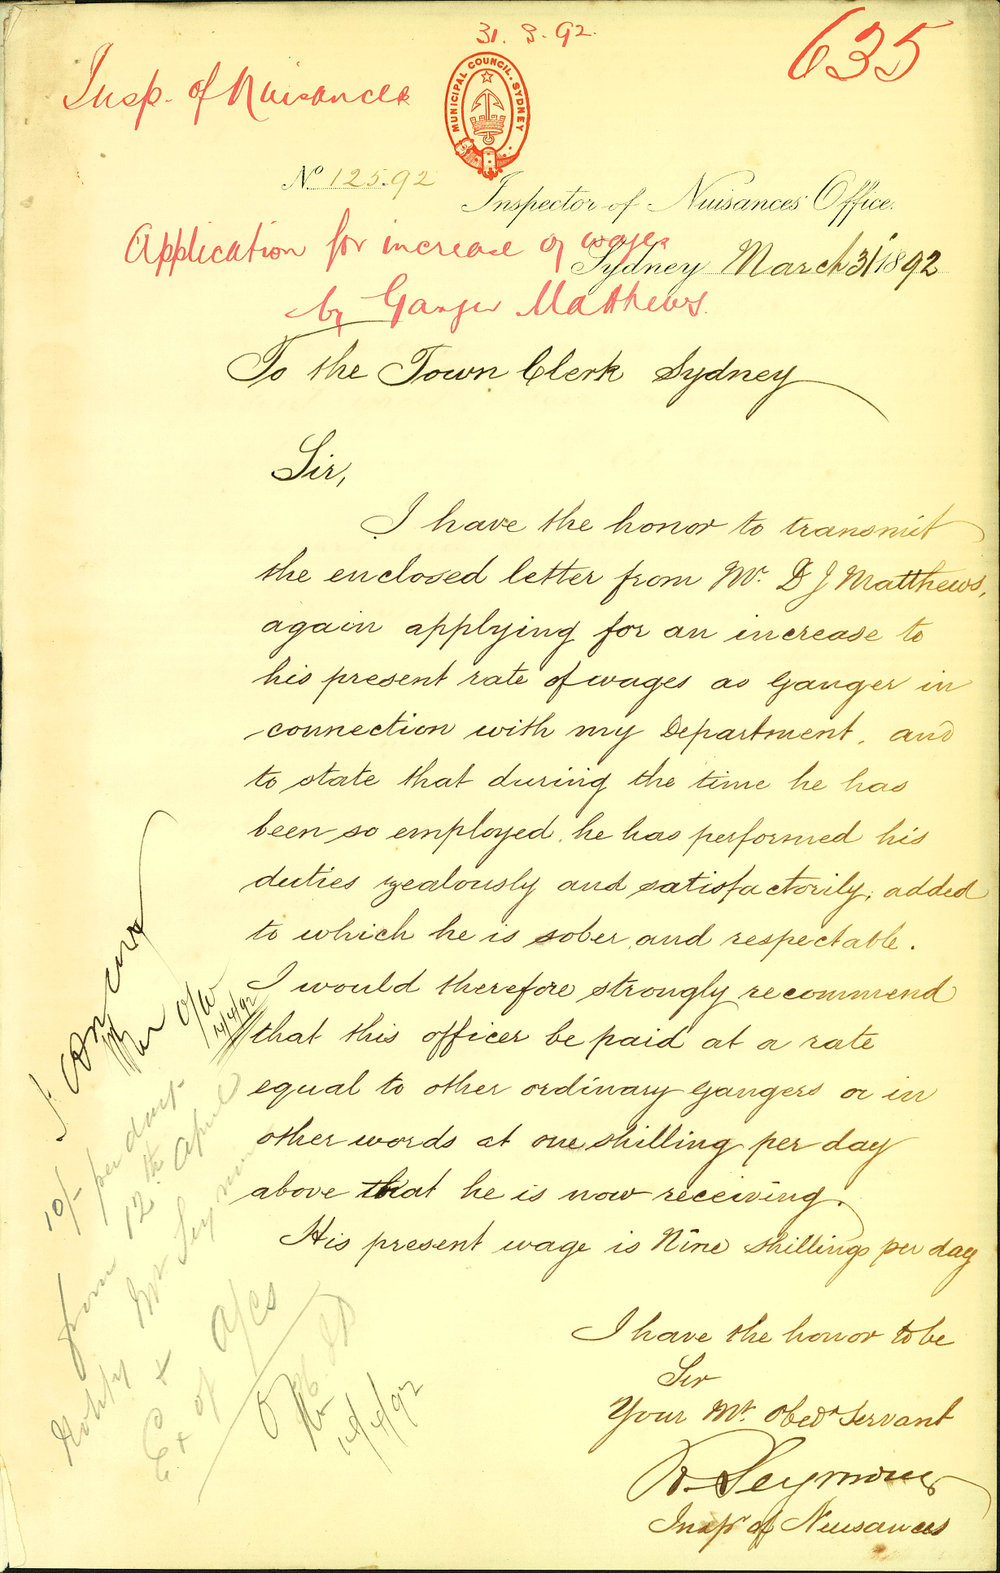 31. 3. 92.
635
Insp. of Nuisances
MUNICIPAL COUNCIL. SYDNEY
No. 125.92
Inspector of Nuisances Office.
Application for increase of wages
Sydney March 31st 1892
by Ganger Matthews.
To the Town Clerk Sydney
Sir,
I have the honor to transmit
the enclosed letter from Mr. D J Matthews,
again applying for an increase to
his present rate of wages as Ganger in
connection with my Department, and
to state that during the time he has
been so employed he has performed his
duties zealously and satisfactorily, added
to which he is sober and respectable.
I would therefore strongly recommend
that this officer be paid at a rate
equal to other ordinary gangers or in
other words at one shilling per day
above that he is now receiving.
His present wage is Nine shillings per day
I have the honor to be
Sir
Your Mt. Obedt Servant
R. Seymour
Inspr of Nuisances
I concur
14/4/92
10/- per day
from 12th April
Notify Mr Seymour
+ Ex of a/cs
14/4/92